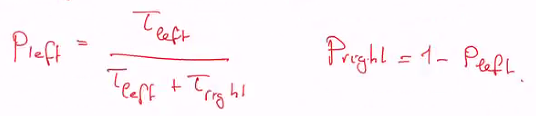 P_left = τ_left / (τ_left + τ_right)    P_right = 1 - P_left.